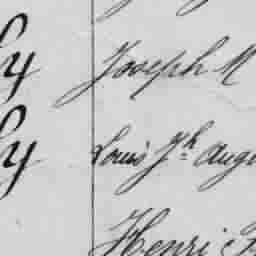 y Joseph M
y Louis Jh Augu
Henri